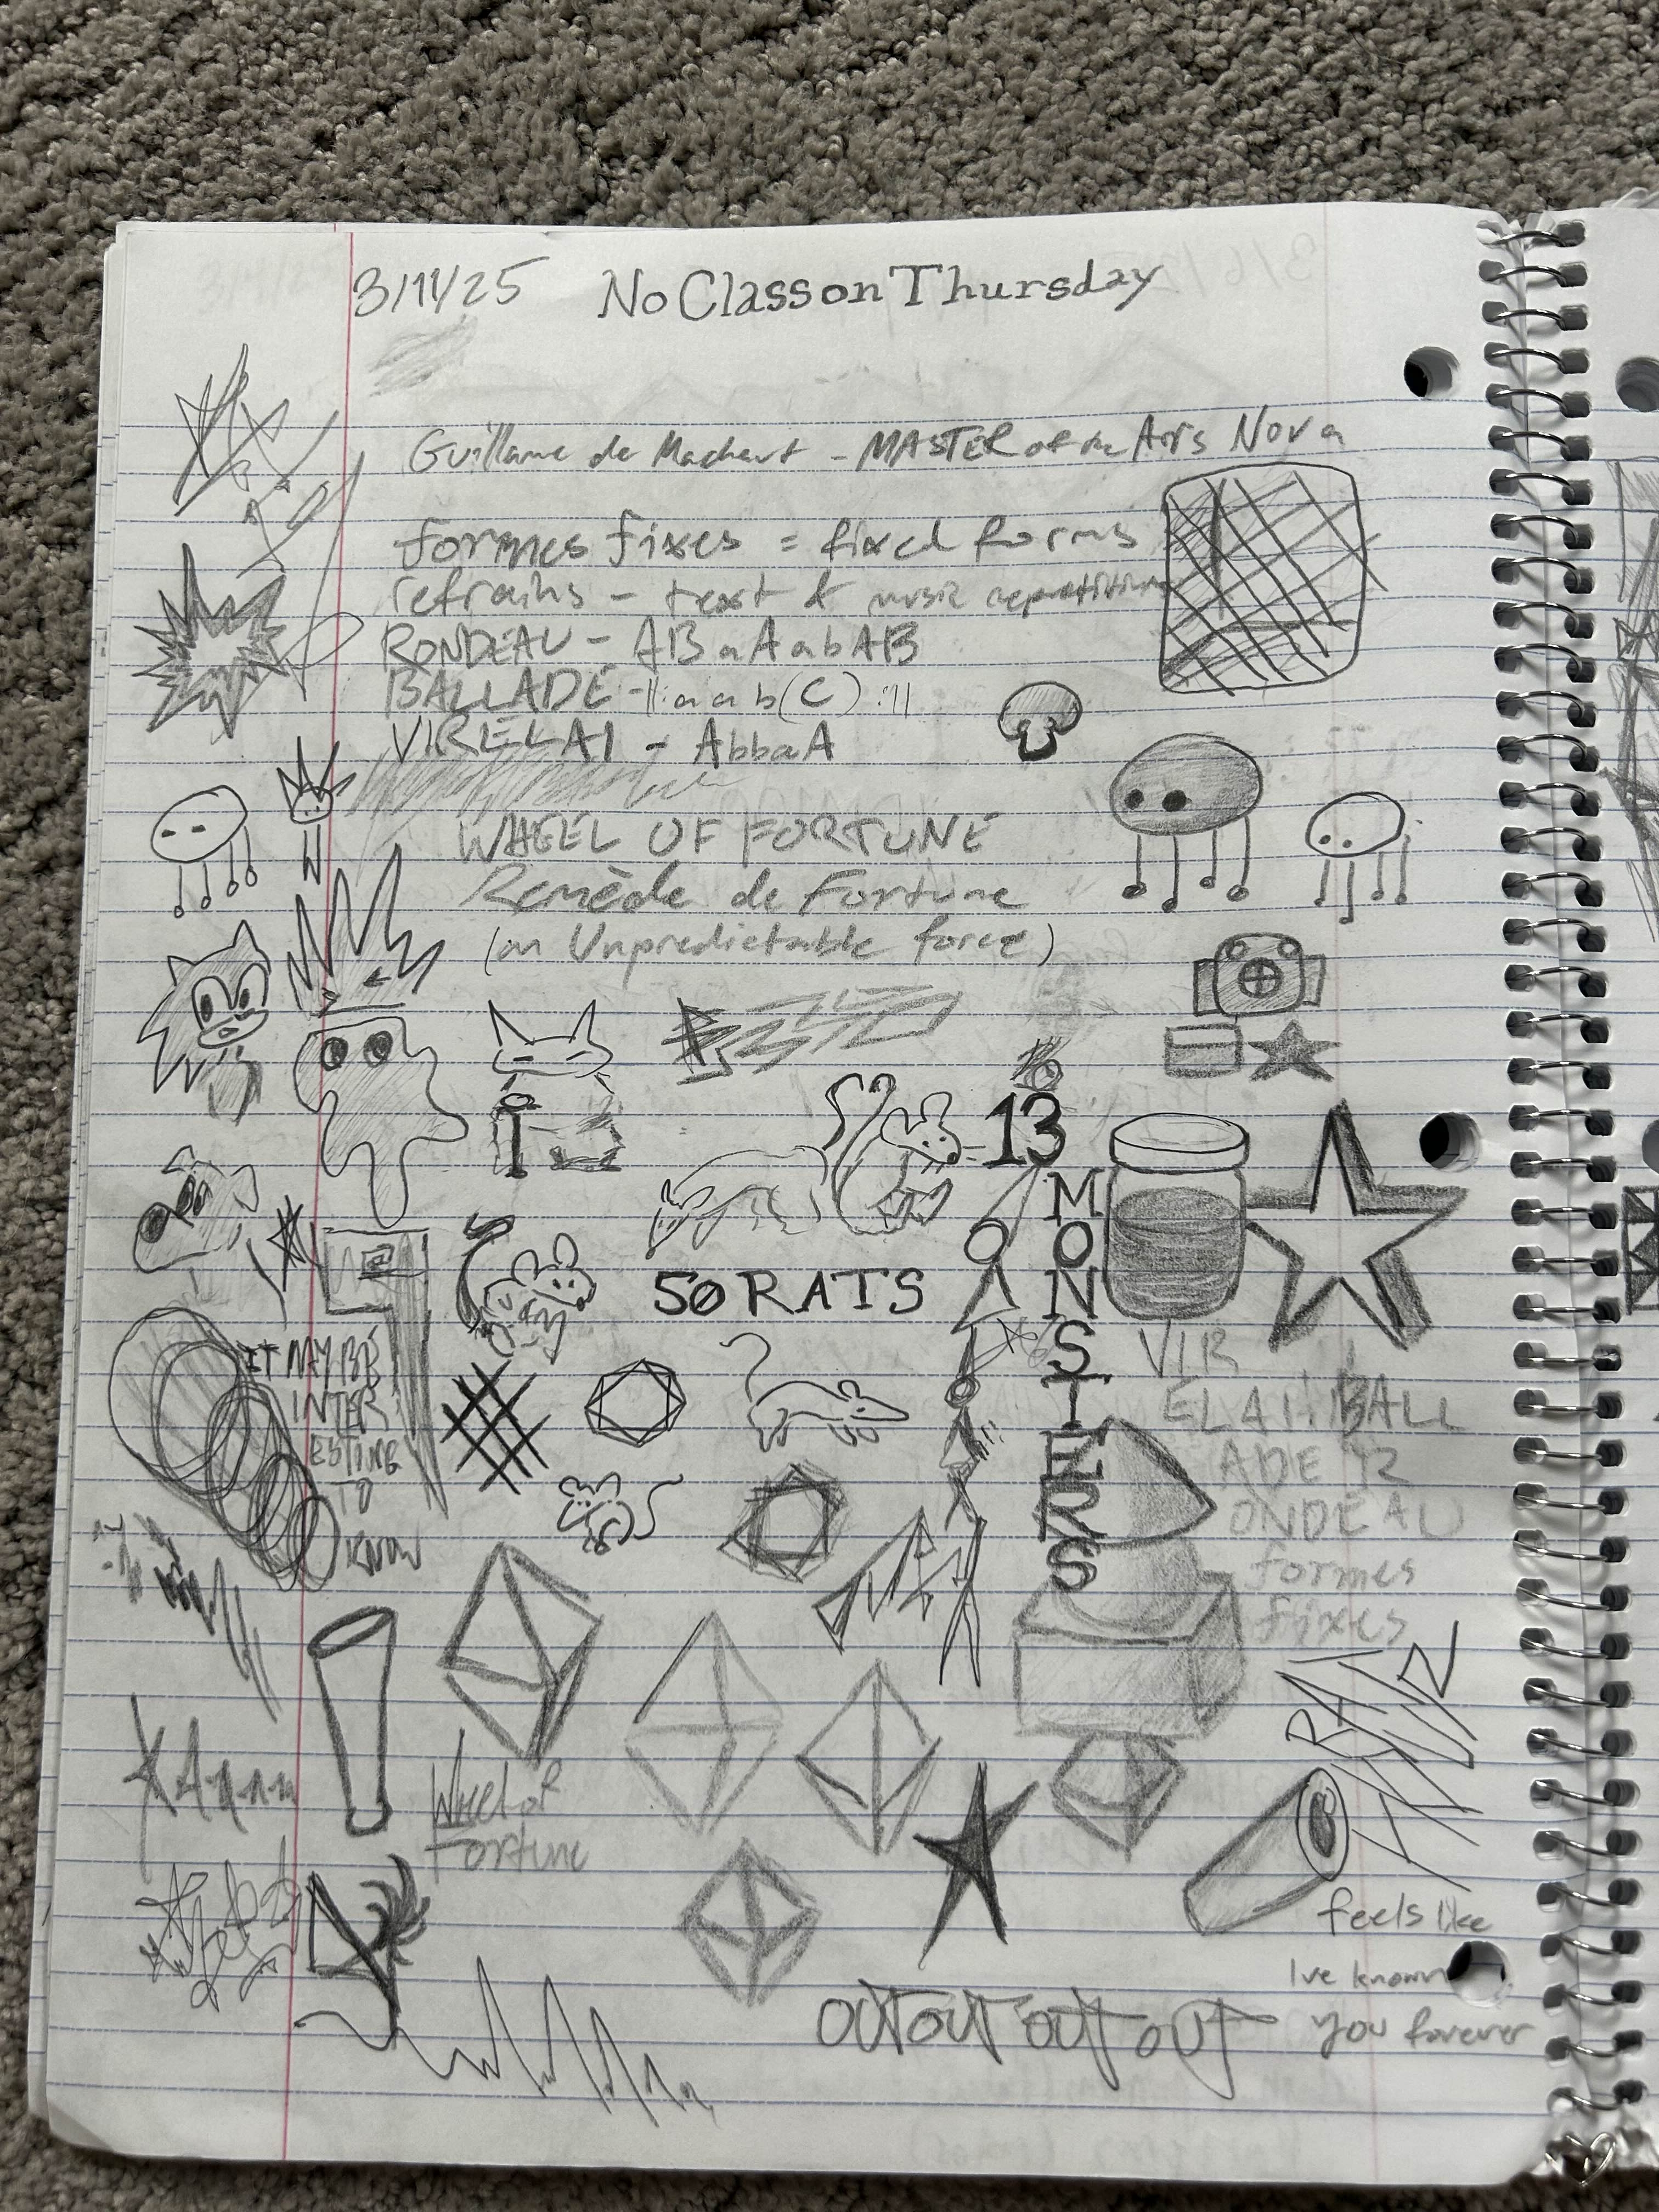 3/11/25 No Class on Thursday
Guillame de Machaut - MASTER of the Ars Nova
formes fixes = fixed forms
refrains - text & music repetition
RONDEAU - ABaAabAB
BALLADE - ||: a a b (C) :||
VIRELAI - AbbaA
WHEEL OF FORTUNE
Remède de Fortune
(an Unpredictable force)
13
MONSTERS
50 RATS
IT MAY BE
INTER
ESTING
TO
KNOW
VIR
ELAI BALL
ADE R
ONDEAU
formes
fixes
RAT
Wheel of
Fortune
feels like
Ive known
you forever
OUT OUT OUT OUT